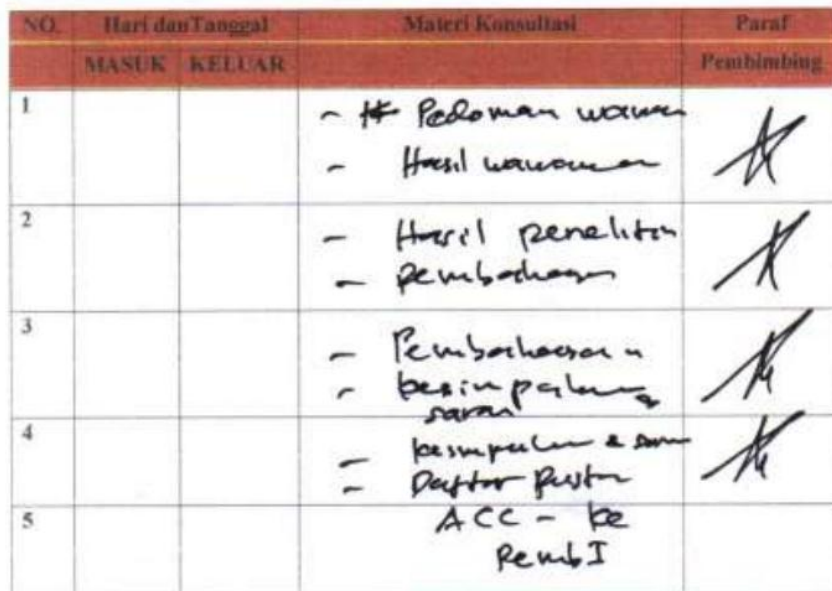 NO. Hari dan Tanggal Materi Konsultasi Paraf
MASUK KELUAR Pembimbing
1
- Pedoman wawan
- Hasil wawancara
2
- Hasil penelitin
- pembahasan
3
- Pembahasan
- kesimpulan &
saran
4
- kesimpulan & saran
- Daftar pustaka
5
ACC - ke
Pemb I